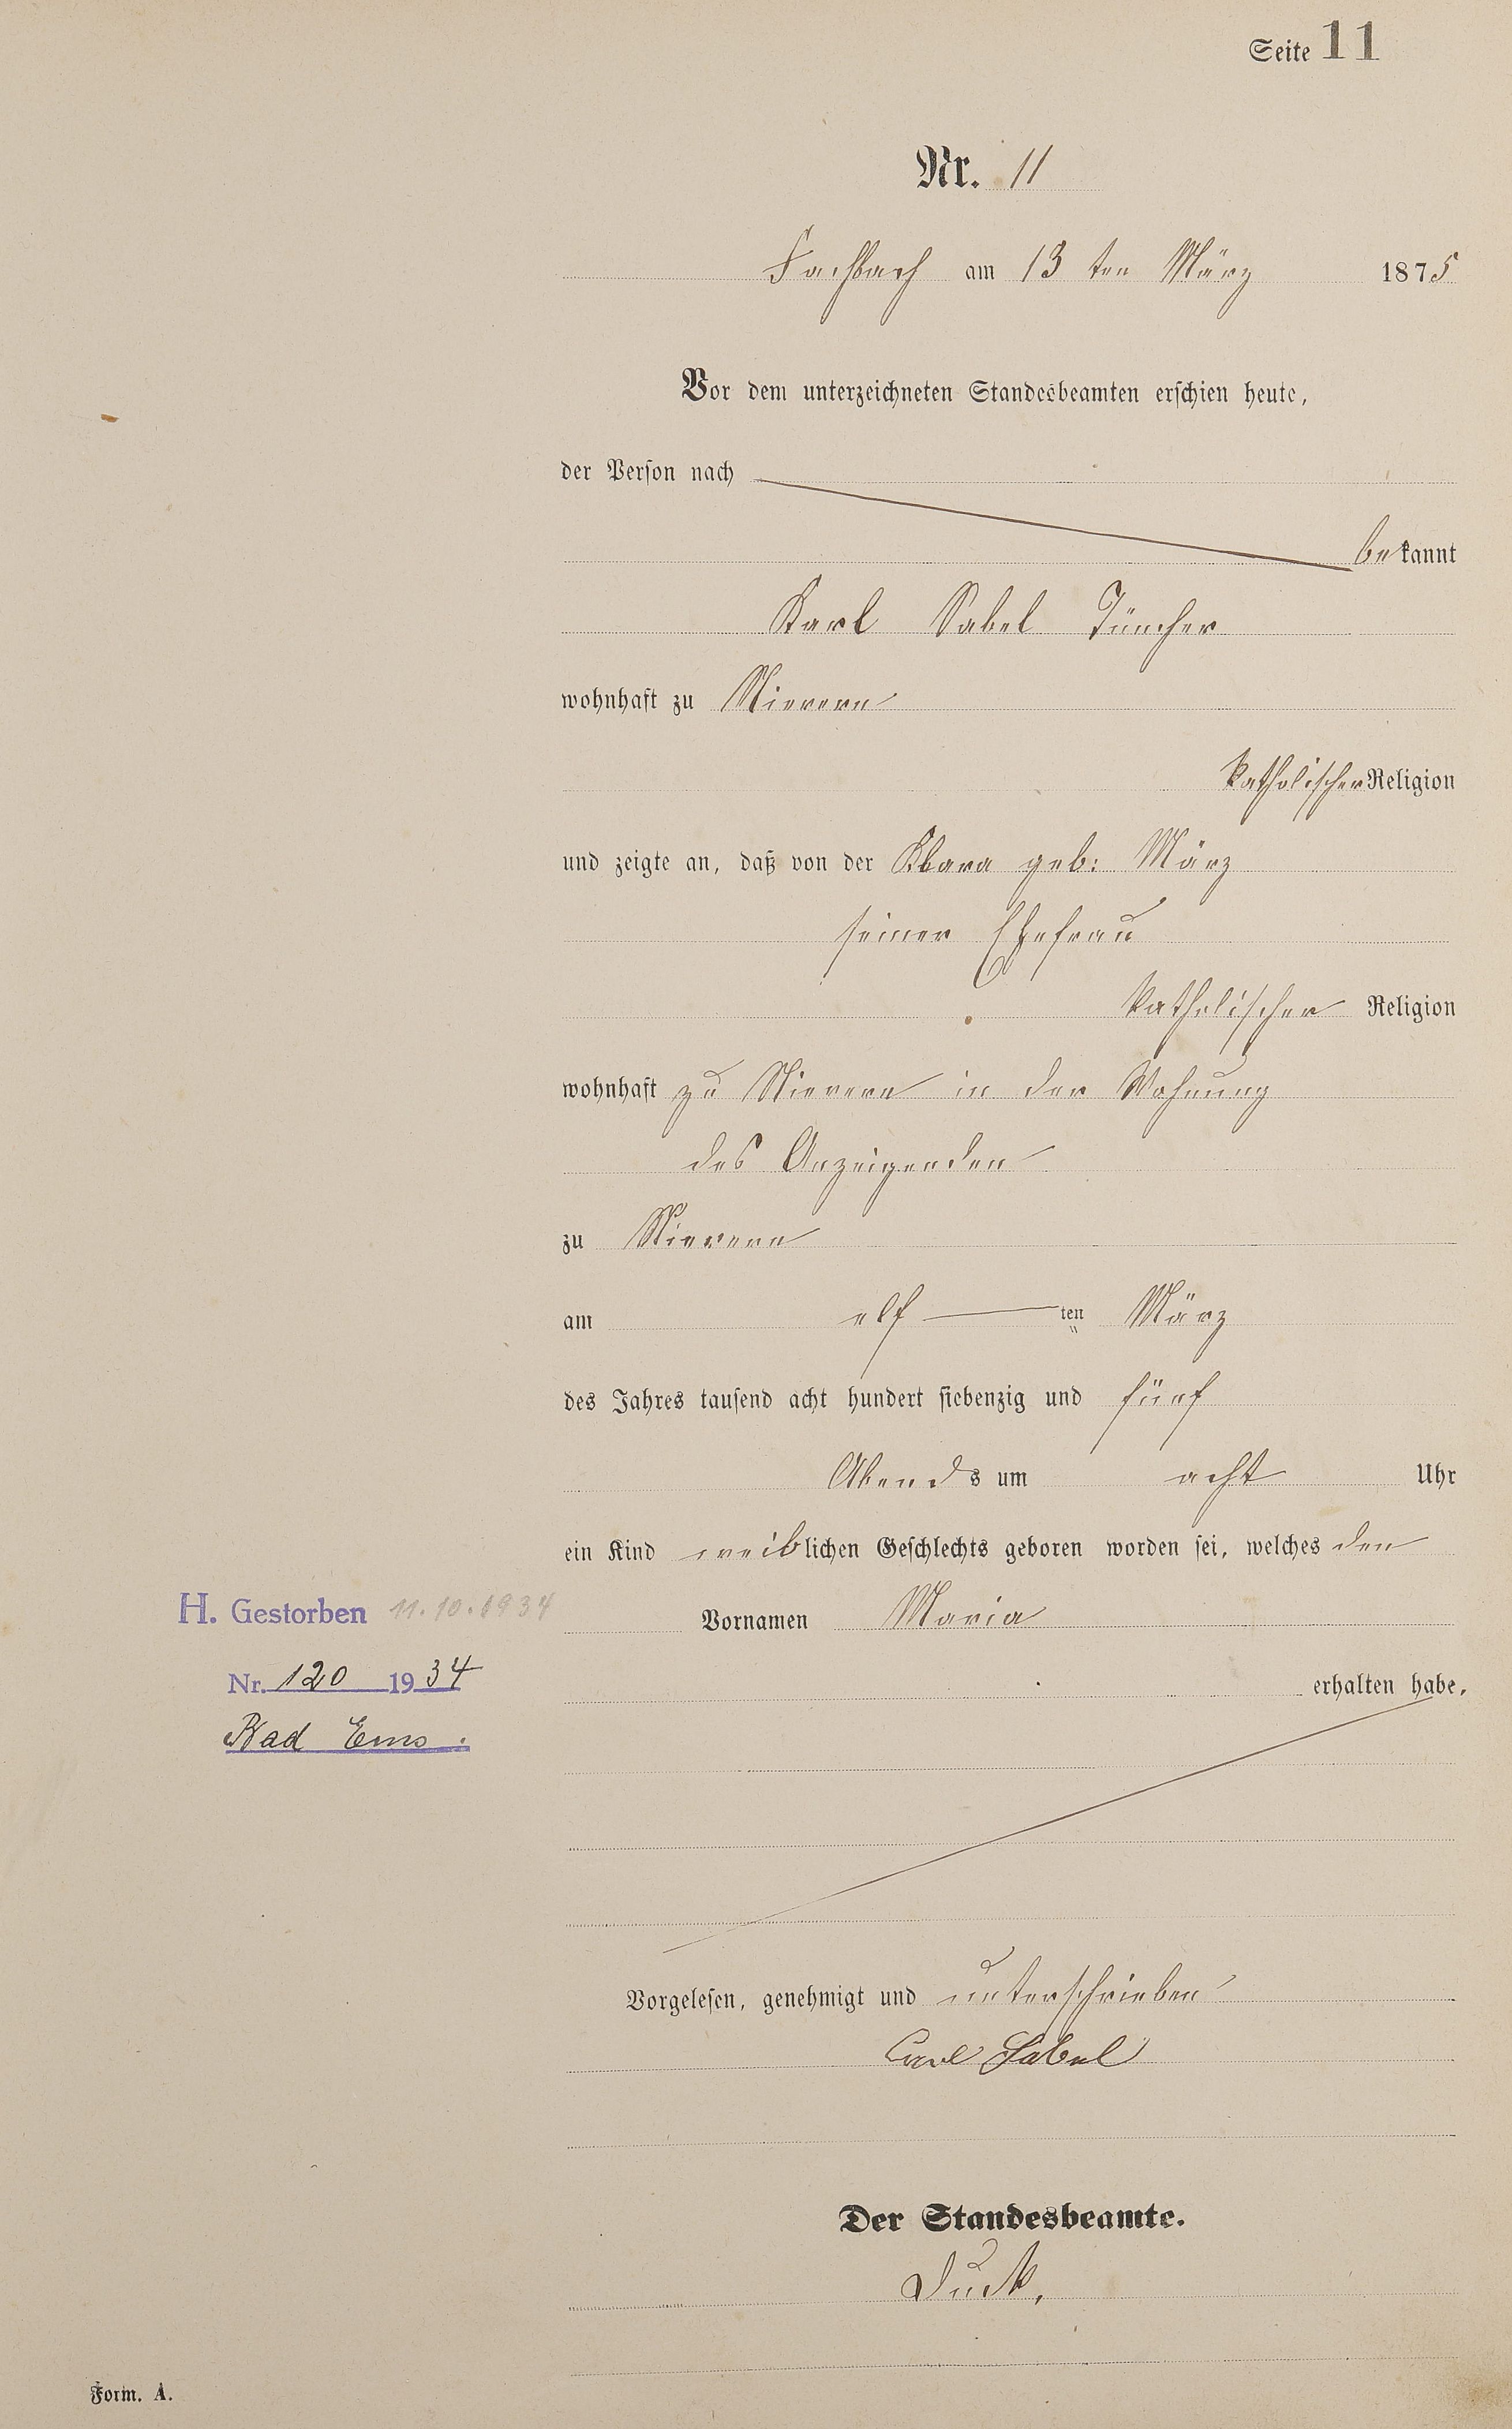 Seite 11
Nr. 11
Fachbach am 13 ten März 1875
Vor dem unterzeichneten Standesbeamten erschien heute,
der Person nach
bekannt
Karl Sabel Tüncher
wohnhaft zu Nievern
katholischer Religion
und zeigte an, daß von der Klara geb: März
seiner Ehefrau
katholischer Religion
wohnhaft zu Nievern in der Wohnung
des Anzeigenden
zu Nievern
am elf ten März
des Jahres tausend acht hundert siebenzig und fünf
Abends um acht Uhr
ein Kind weiblichen Geschlechts geboren worden sei, welches den
Vornamen Maria
erhalten habe.
H. Gestorben 11.10.1934
Nr. 120 1934
Bad Ems.
Vorgelesen, genehmigt und unterschrieben
Carl Sabel
Der Standesbeamte.
Form. A.